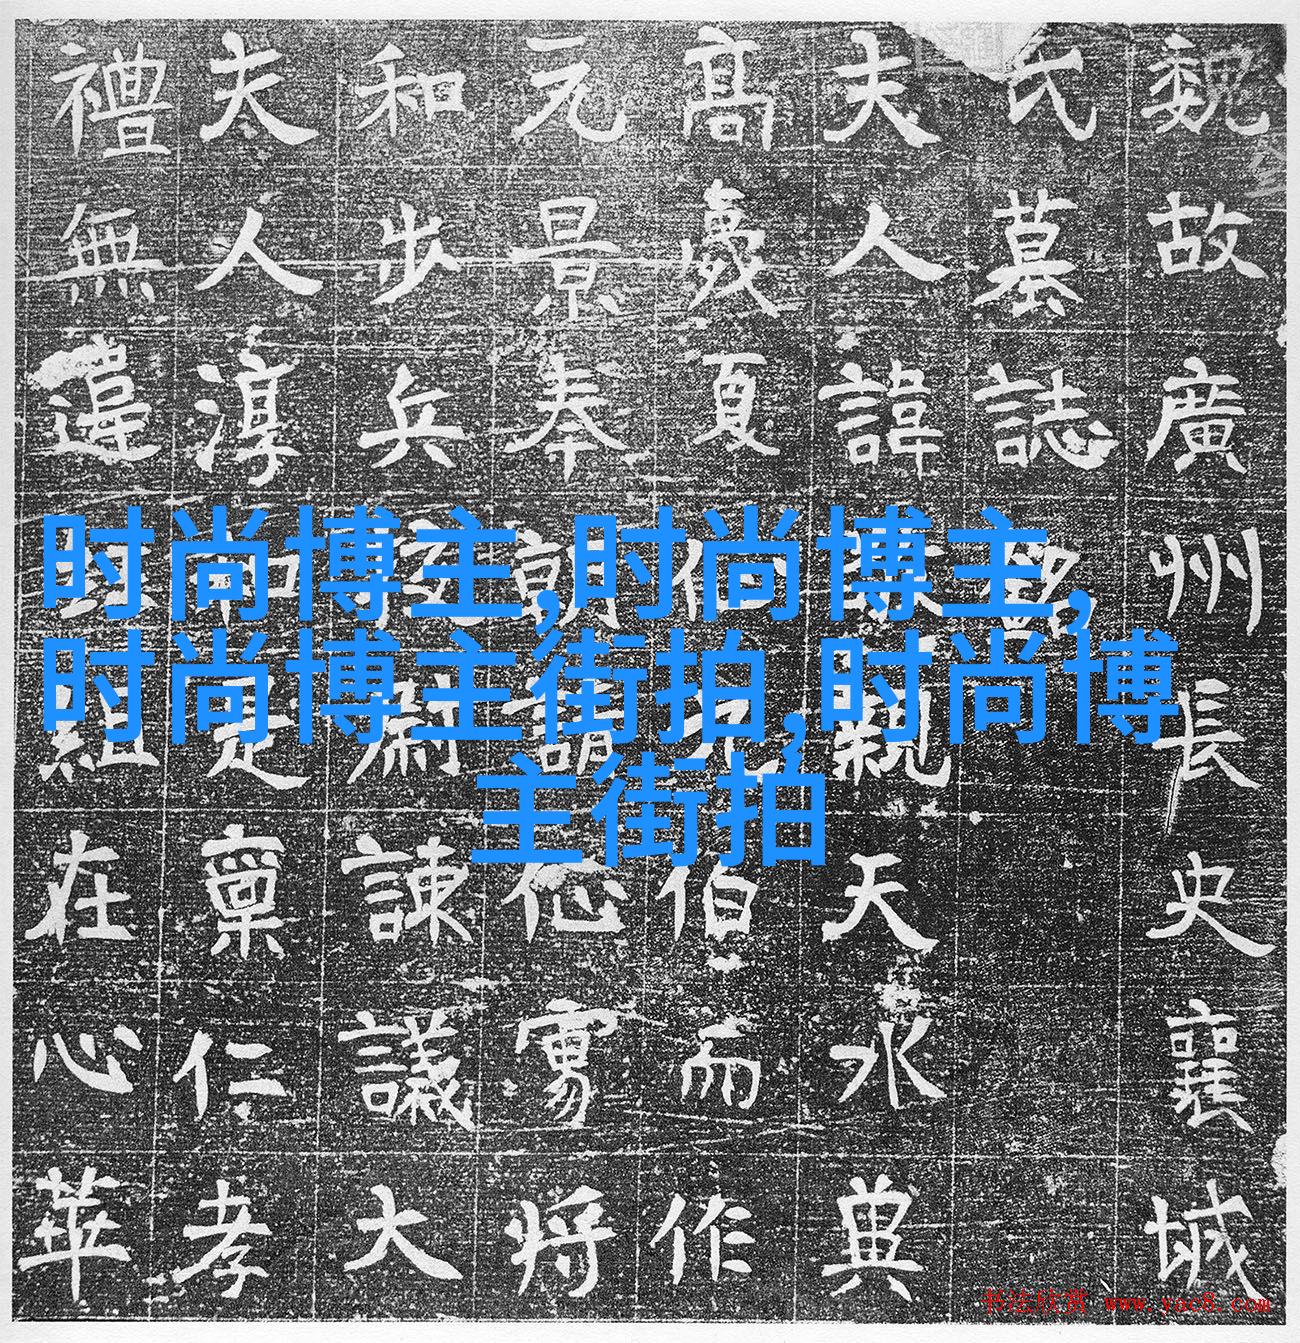 魏故廣州長史襄城
氏墓誌銘
夫人諱親天水典
高歲夏伯而作
元景奉朝請將
和步兵校尉諫議大
夫人淳和是稟仁孝
禮無違組在心華
时尚博主,时尚博主,
时尚博主街拍,时尚博
主街拍
书法欣赏 www.yac8.com